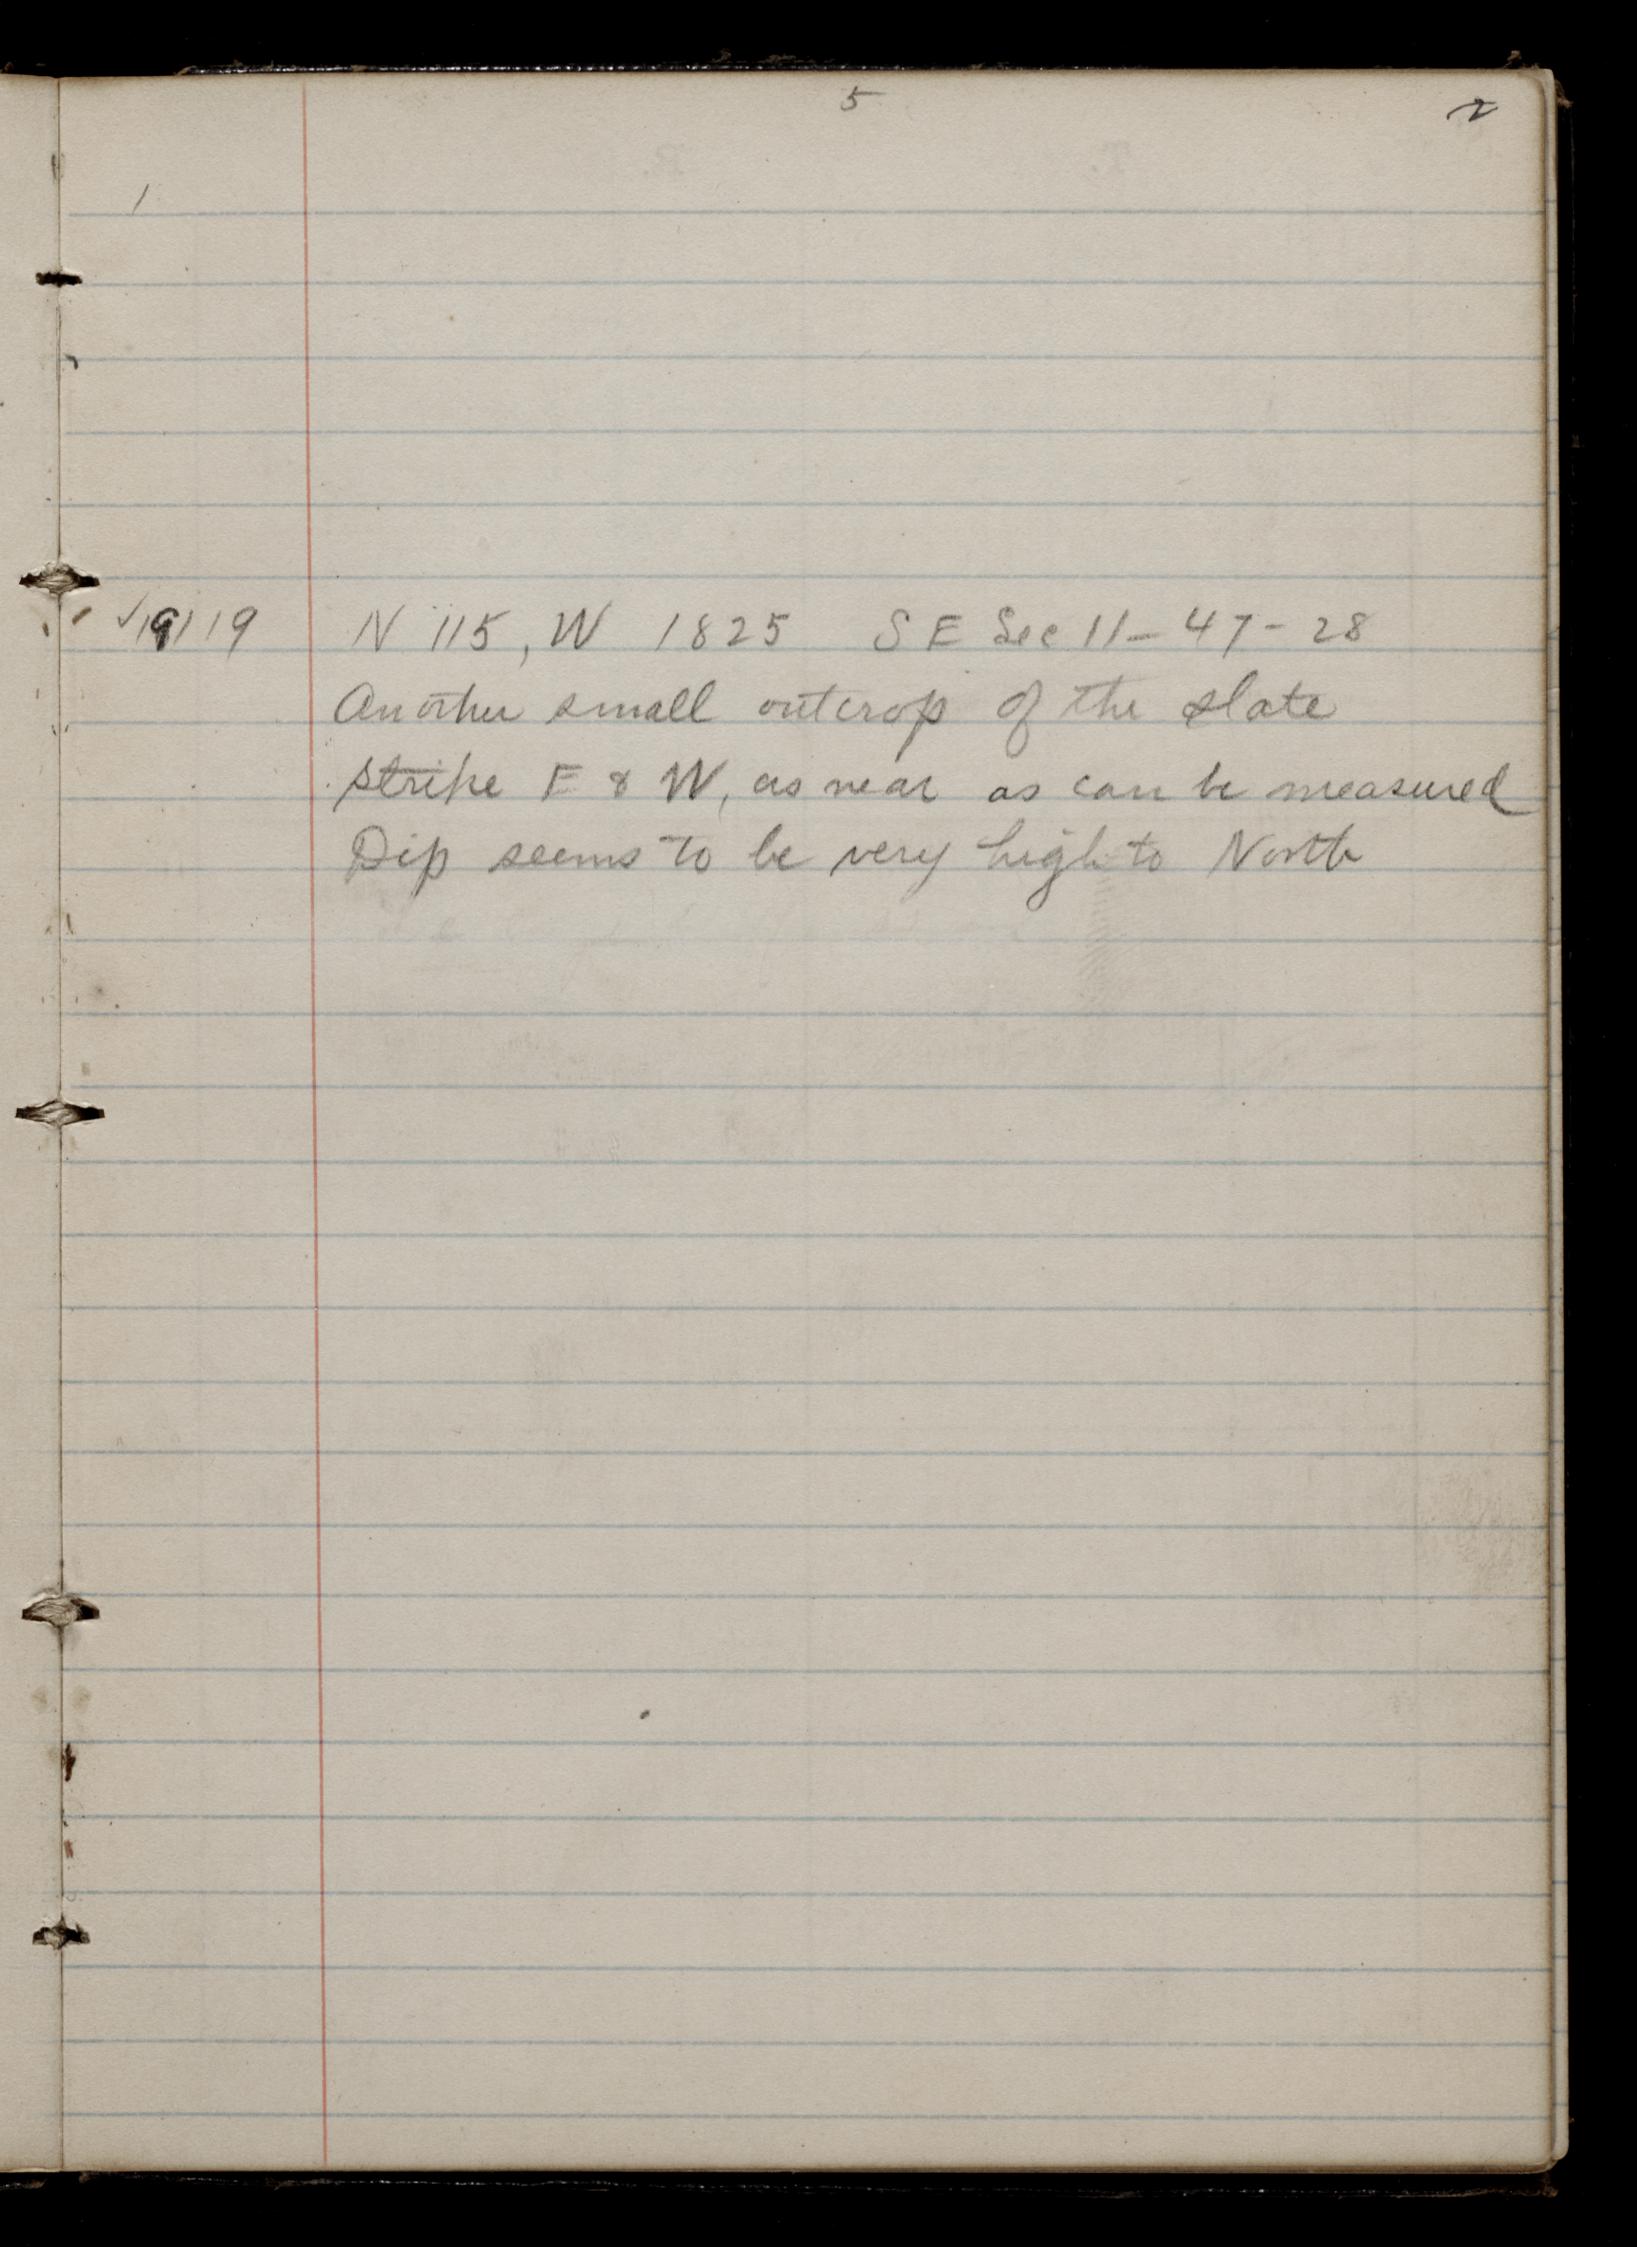 5
2
1
19119 N 115, W 1825 SE Sec 11-47-28
Another small outcrop of the slate
strike E & W, as near as can be measured
Dip seems to be very high to North